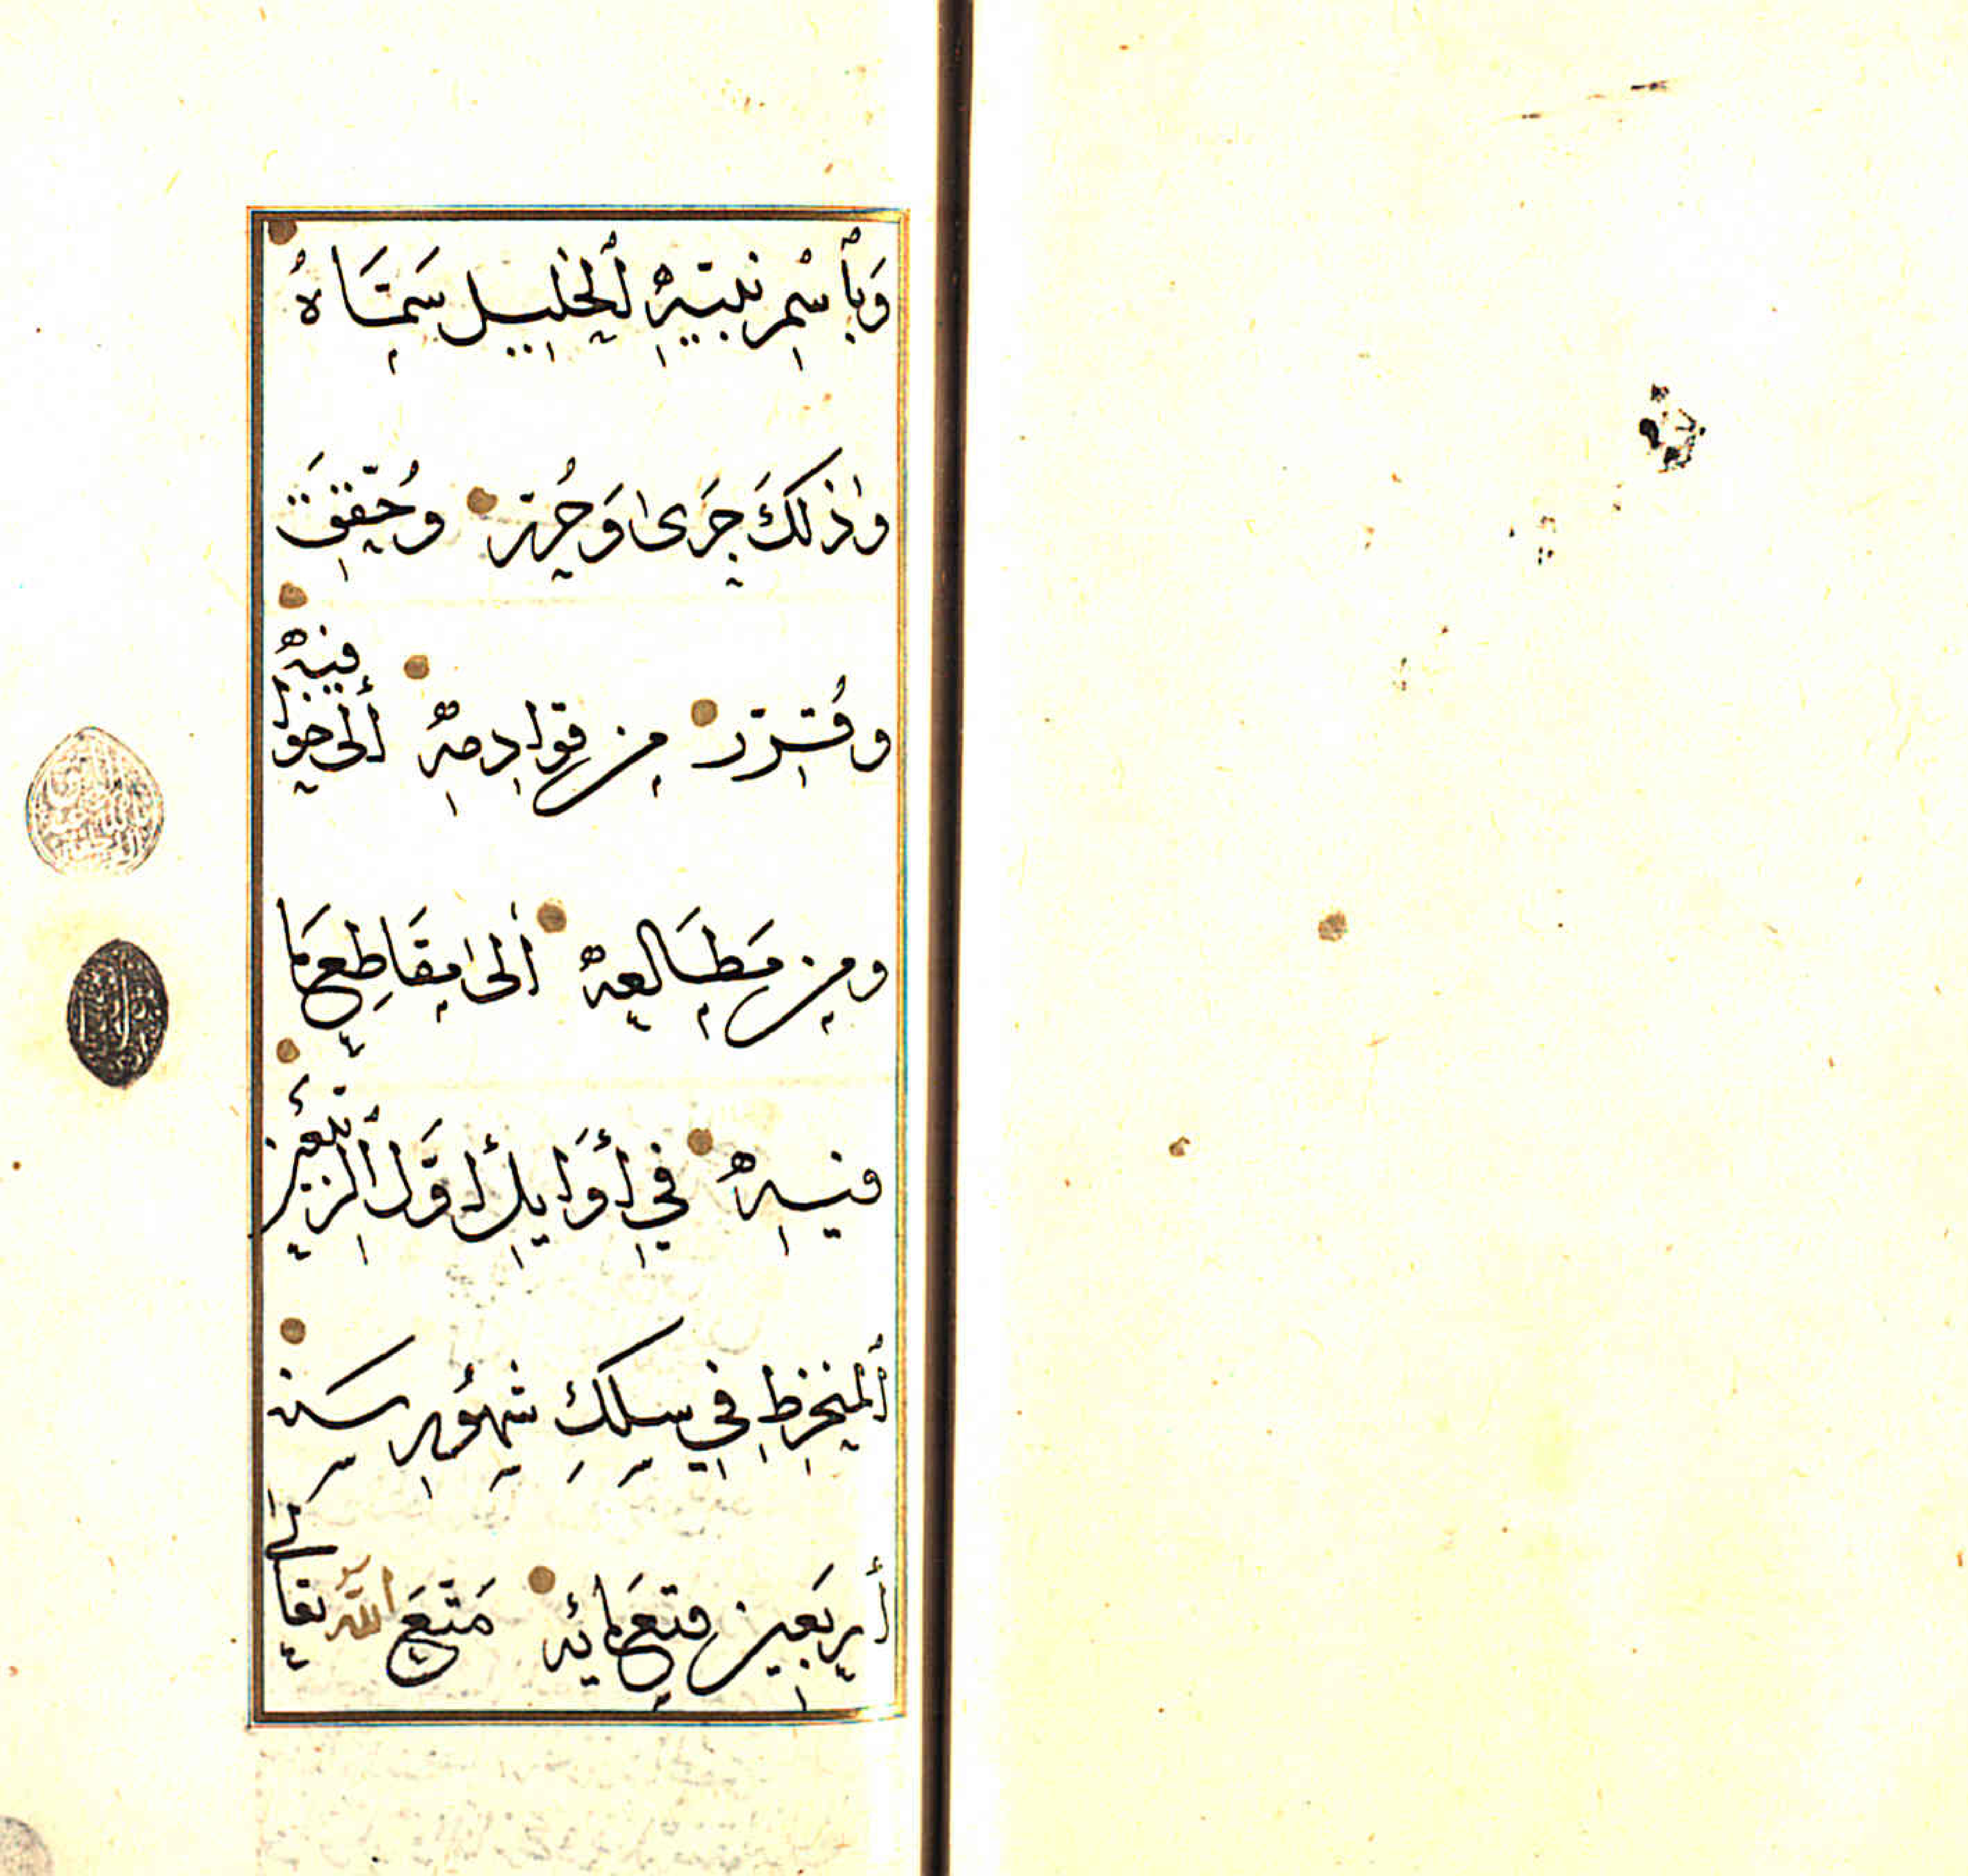 وَبِٱسْمِ نَبِيِّهِ ٱلْخَلِيلِ سَمَّاهُ
وَذَلِكَ جَرَى وَحُرِّرَ وَحُقِّقَ
وقُرِّرَ مِن قَوادِمِهِ إلى خَوافِيهِ
ومِن مَطَالِعِهِ إلى مَقَاطِعِ مَا
فِيهِ في أَوَايِلِ أوَّلِ ٱلرَّبِيعَيْنِ
ٱلْمُنْخَرِطِ فِي سِلْكِ شُهُورِ سَنَة
أَرْبَعِين وتِسْعِمائِه مَتَّعَ اللهُ تَعَالَى